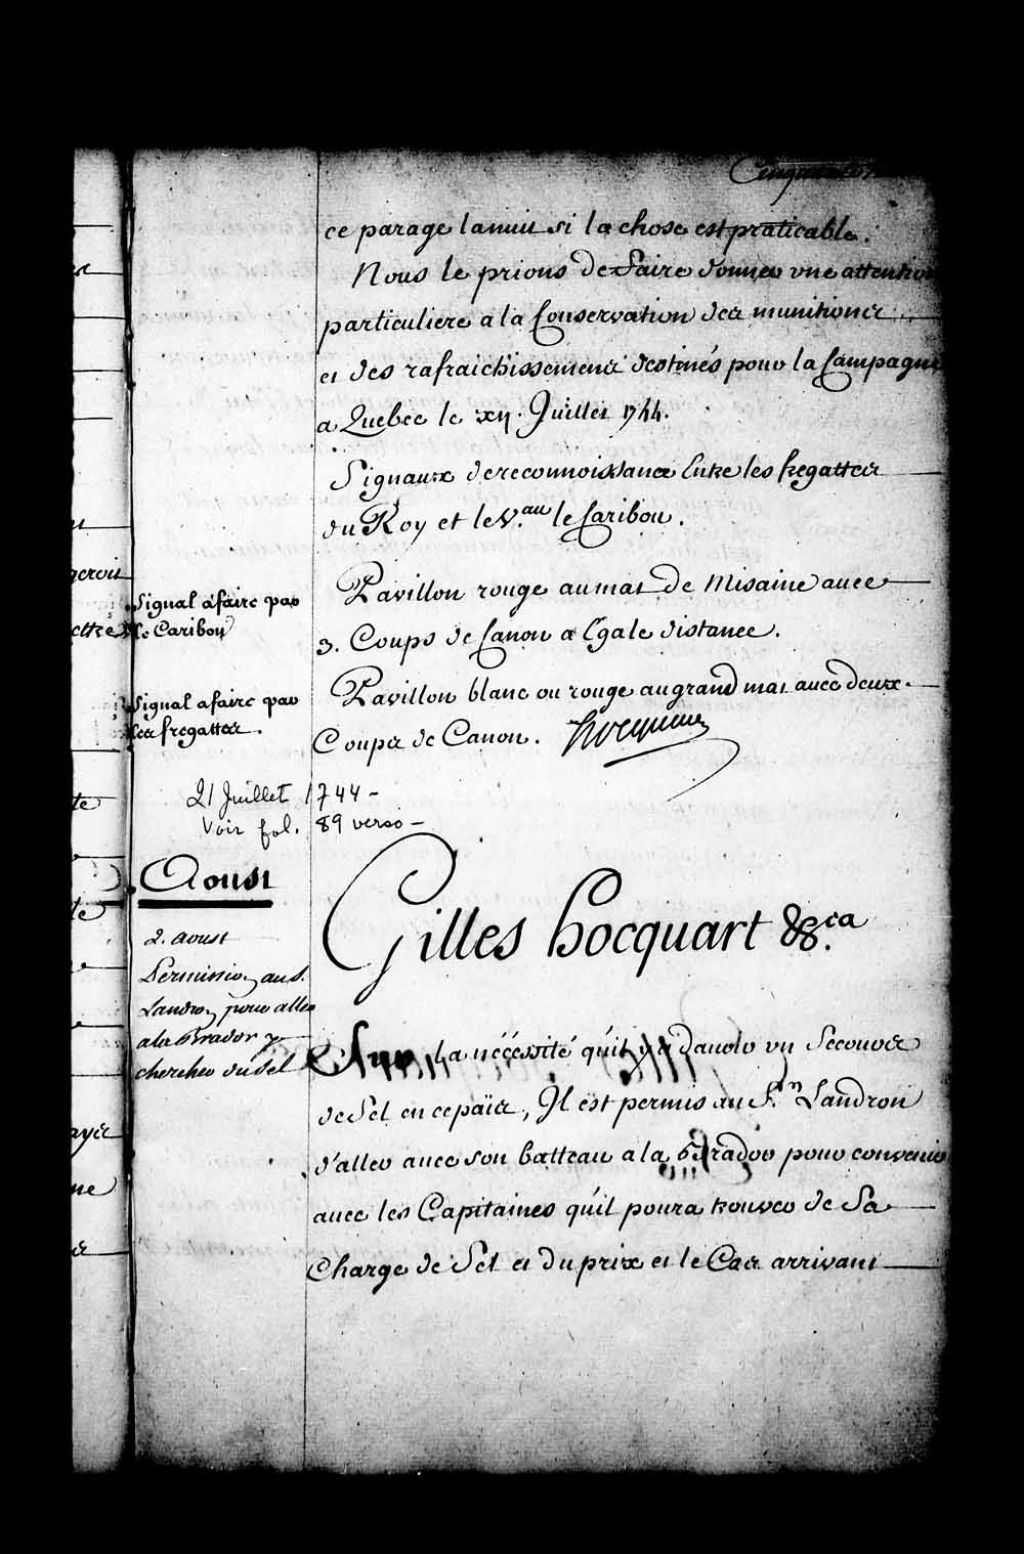 Cinquante
ce parage lanuit si la chose est praticable.
Nous le prions de faire donner vne attention
particuliere a la Conservation des munitions
et des rafraichissemens destinés pour la Campagne
a Quebec le xij. Juillet 1744.
Signaux de reconnoissance Entre les fregattes
du Roy et le V.au le Caribou.
Signal a faire par
le Caribou
Pavillon rouge au mat de Misaine avec
3. Coups de Canon a Egale distance.
Signal a faire par
les fregattes.
Pavillon blanc ou rouge au grand mat avec deux
Coups de Canon. Hocquart
21 Juillet 1744 -
Voir fol. 89 verso -
Aoust
Gilles hocquart &.ca
2. aoust
Permission au S.
Landron pour aller
a la Brador y
chercher du Sel
Sur la nécéssité qu'il y a d'avoir vn Secours
de Sel en ce païs, Il est permis au S.n Landron
d'aller avec son batteau a la Brador pour convenir
avec les Capitaines qu'il poura trouver de Sa
Charge de Sel et du prix et le Cas arrivant